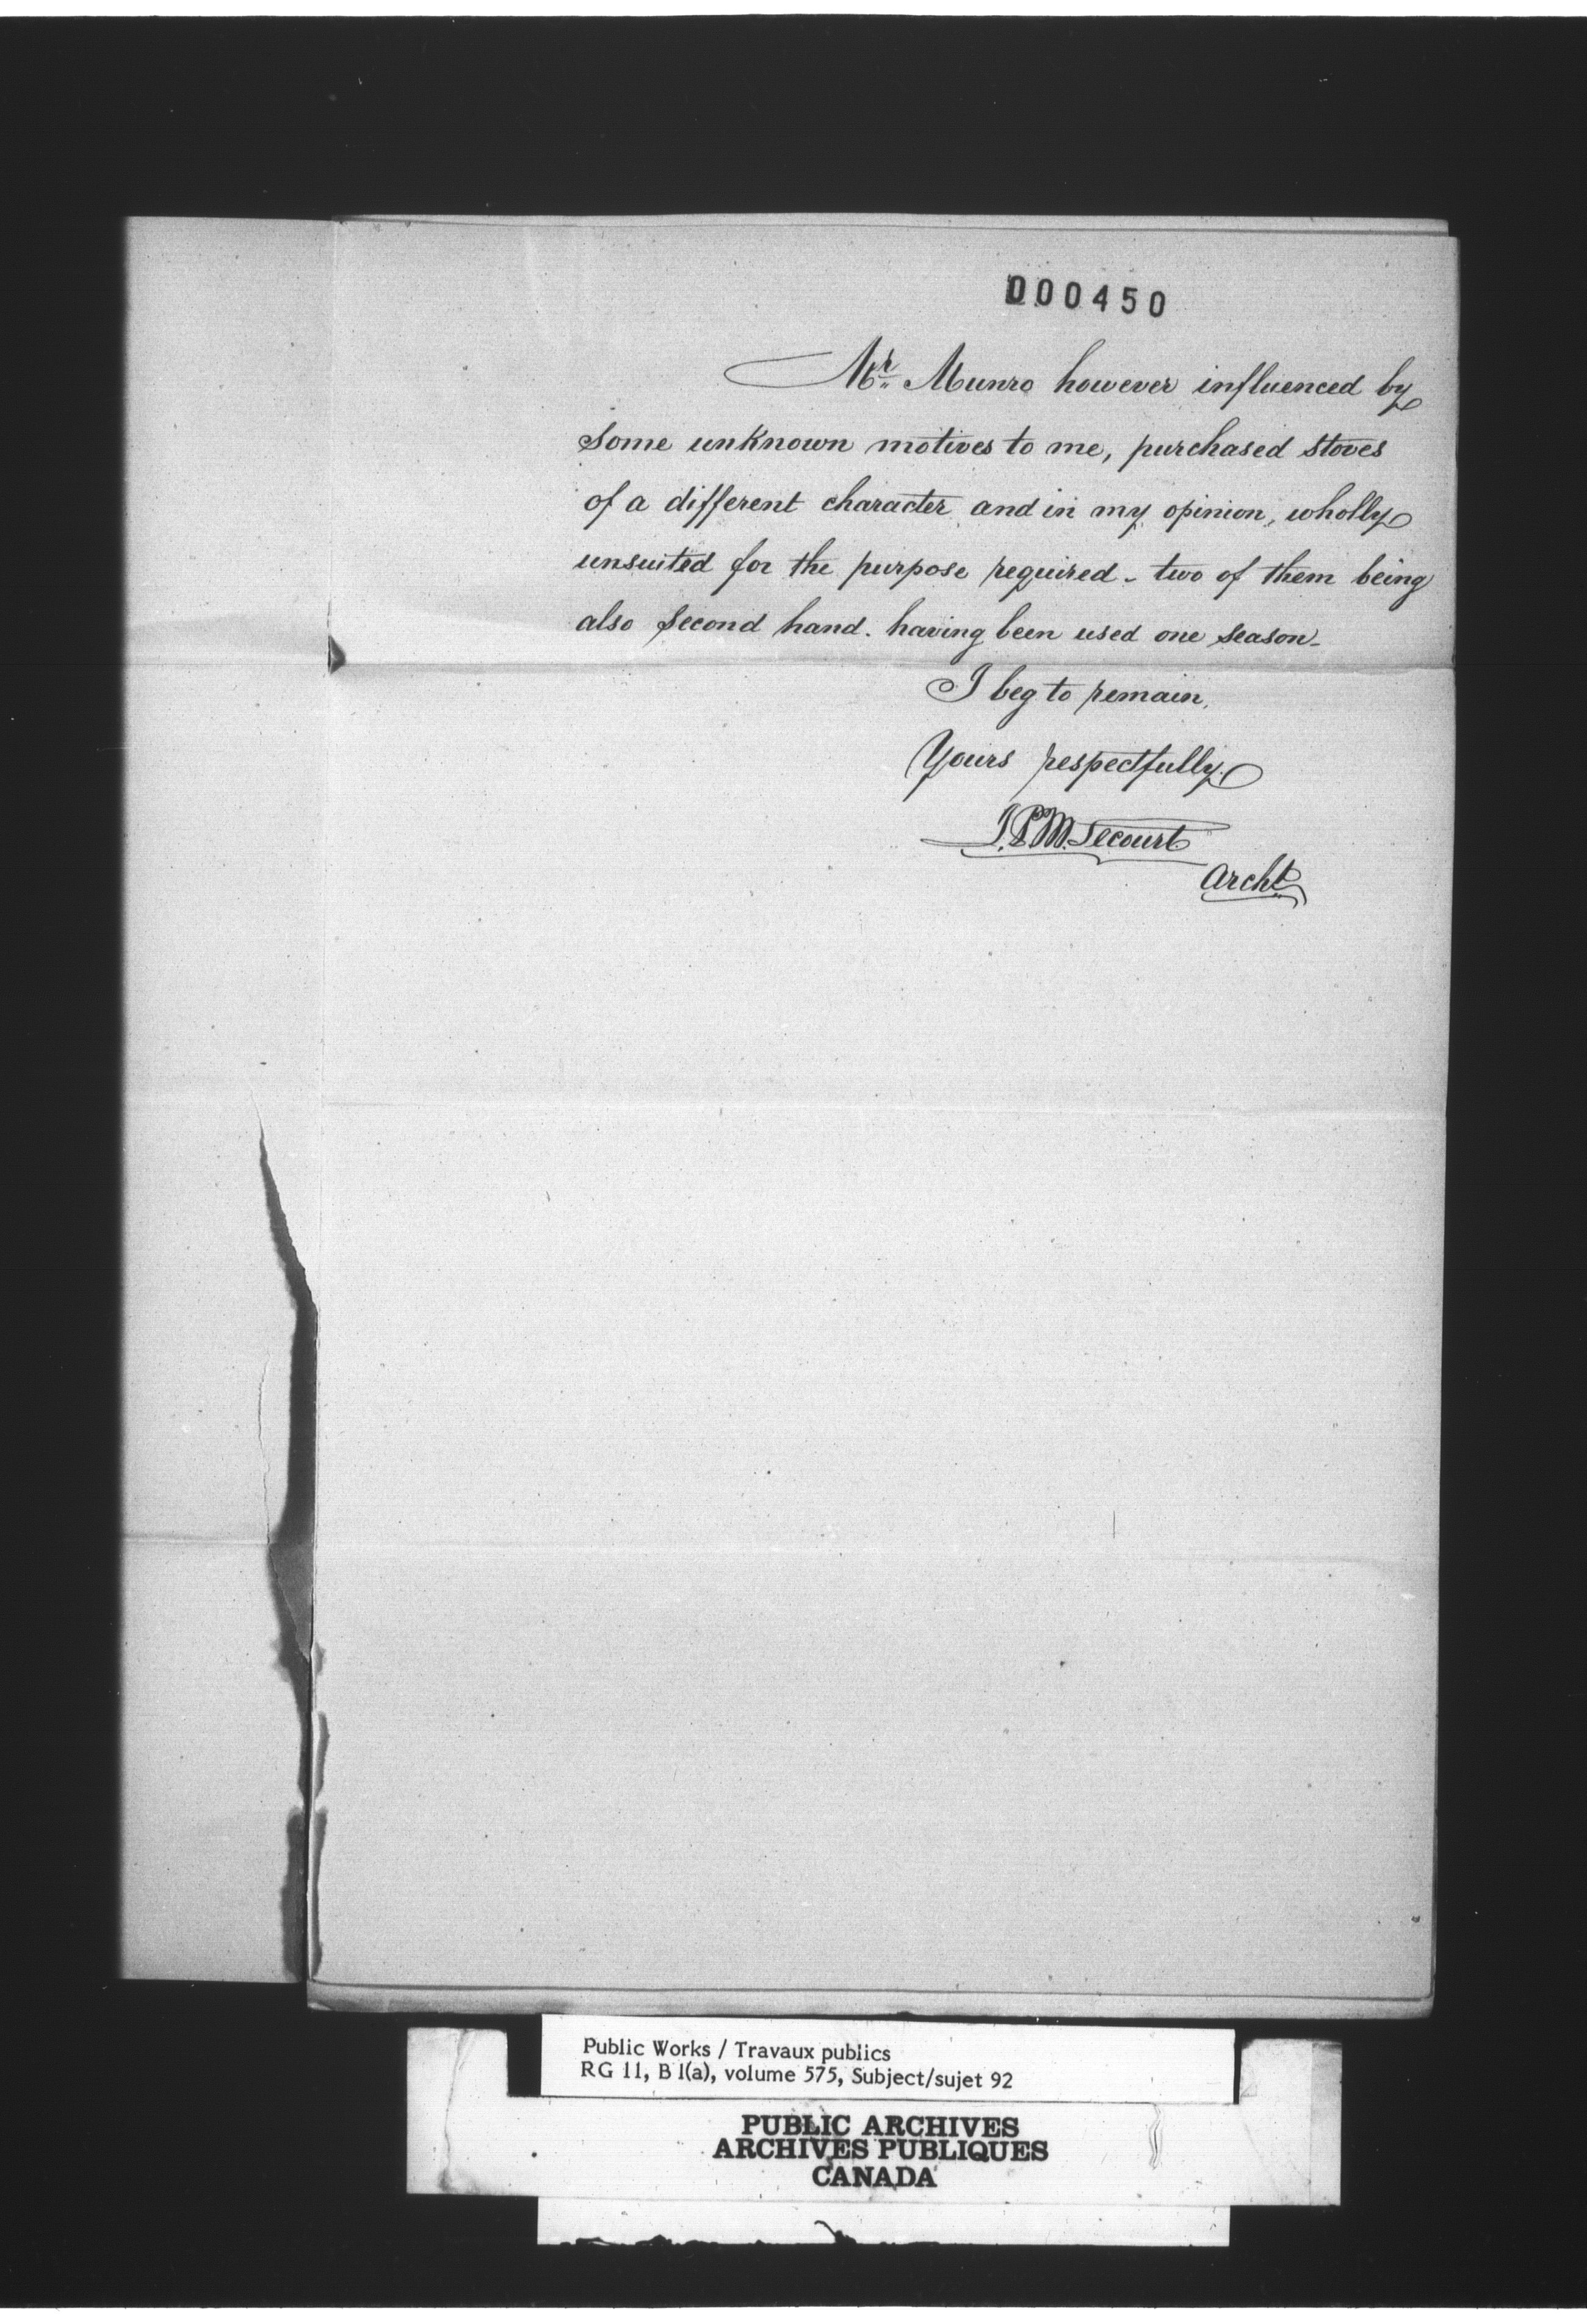 000450
Mr. Munro however influenced by
some unknown motives to me, purchased stoves
of a different character and in my opinion, wholly
unsuited for the purpose required - two of them being
also second hand. having been used one season -
I beg to remain,
Yours respectfully.
J.P.M. Lecourt
Archt.
Public Works / Travaux publics
RG 11, B 1(a), volume 575, Subject/sujet 92
PUBLIC ARCHIVES
ARCHIVES PUBLIQUES
CANADA